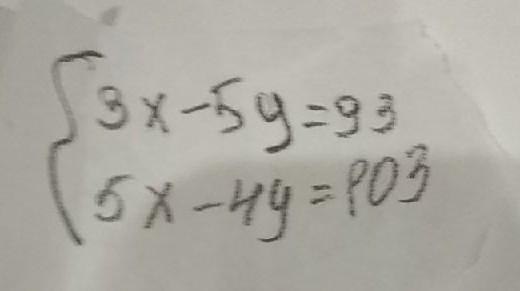 3x-5y=93
5x-4y=103